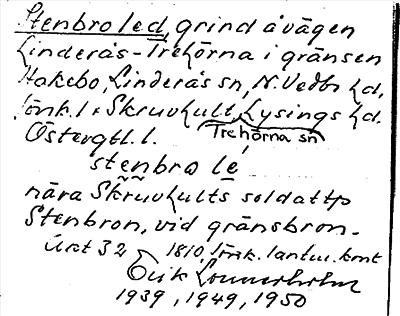 Stenbro led, grind å vägen
Linderås-Trehörna i gränsen
Hakebo, Linderås sn, N. Vedbo hd,
Jönk. l & Skruvhult, Lysings hd.
Trehörna sn
Östergtl. l.
stenbro lé
nära Skruvhults soldattp
Stenbron, vid gränsbron.
Ukt 32 1810, Jönk. lantm. kont
Erik Lönnerholm
1939, 1949, 1950